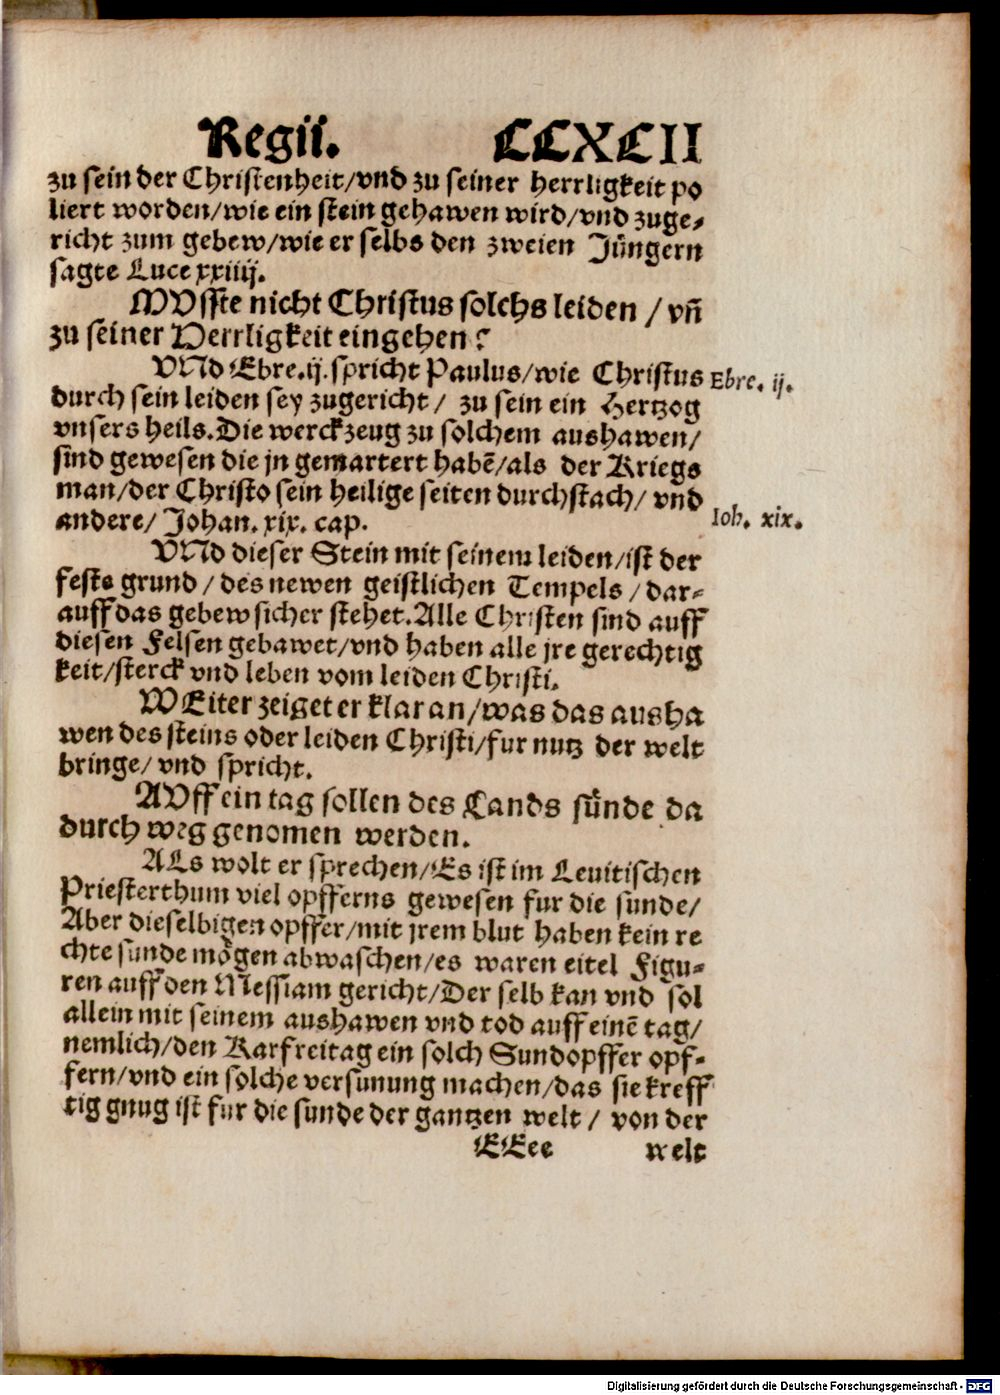 Regii. CCXCII
zu sein der Christenheit/vnd zu seiner herrligkeit po
liert worden/wie ein stein gehawen wird/vnd zuge-
richt zum gebew/wie er selbs den zweien Jüngern
sagte Luce xxiiij.
MVsste nicht Christus solchs leiden / vñ
zu seiner Herrligkeit eingehen?
VNd Ebre.ij.spricht Paulus/wie Christus
Ebre. ij.
durch sein leiden sey zugericht/ zu sein ein Hertzog
vnsers heils.Die werckzeug zu solchem aushawen/
sind gewesen die jn gemartert habẽ/als der Kriegs
man/der Christo sein heilige seiten durchstach/ vnd
andere/ Johan. xix. cap.
Ioh. xix.
VNd dieser Stein mit seinem leiden/ist der
feste grund / des newen geistlichen Tempels / dar-
auff das gebew sicher stehet.Alle Christen sind auff
diesen Felsen gebawet/vnd haben alle jre gerechtig
keit/sterck vnd leben vom leiden Christi.
WEiter zeiget er klar an/was das ausha
wen des steins oder leiden Christi/fur nutz der welt
bringe/ vnd spricht.
AVff ein tag sollen des Lands sünde da
durch weg genomen werden.
ALs wolt er sprechen/Es ist im Leuitischen
Priesterthum viel opfferns gewesen fur die sunde/
Aber dieselbigen opffer/mit jrem blut haben kein re
chte sunde mögen abwaschen/es waren eitel Figu-
ren auff den Messiam gericht/Der selb kan vnd sol
allein mit seinem aushawen vnd tod auff einẽ tag/
nemlich/den Karfreitag ein solch Sundopffer opf-
fern/vnd ein solche versunung machen/das sie kreff
tig gnug ist fur die sunde der gantzen welt / von der
EEee welt
Digitalisierung gefördert durch die Deutsche Forschungsgemeinschaft - DFG